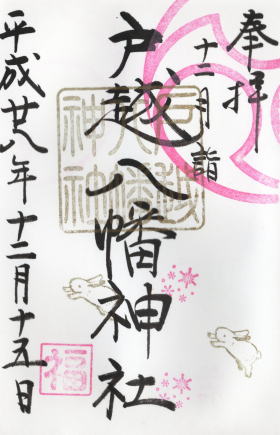 奉拝
十二月詣
戸越八幡神社
平成廿八年十二月十五日
福